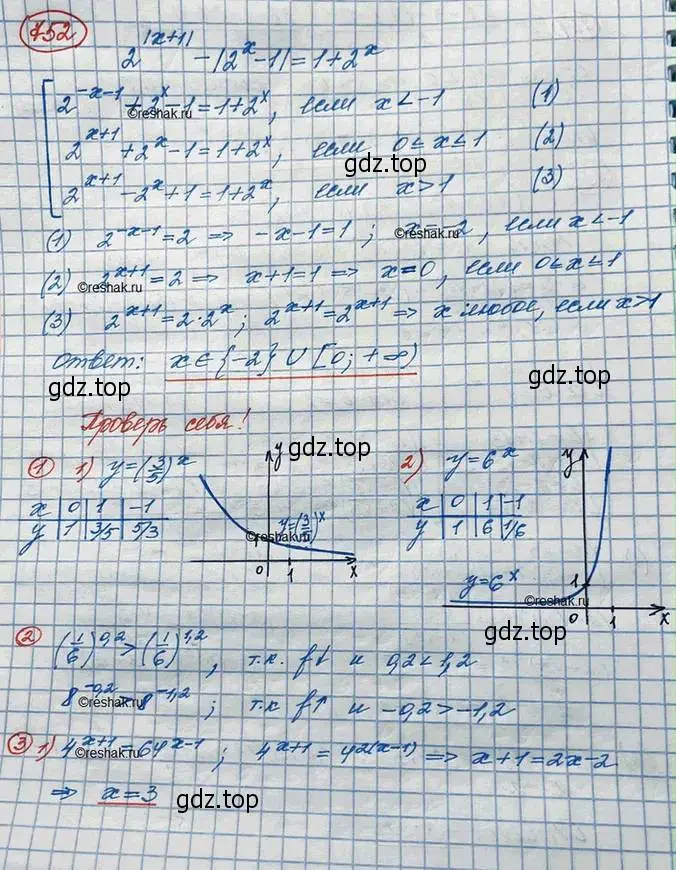 752
2^{|x+1|} - |2^x - 1| = 1 + 2^x
2^{-x-1} + 2^x - 1 = 1 + 2^x, если x < -1 (1)
©reshak.ru
2^{x+1} + 2^x - 1 = 1 + 2^x, если 0 ≤ x ≤ 1 (2)
gdz.top
2^{x+1} - 2^x + 1 = 1 + 2^x, если x > 1 (3)
(1) 2^{-x-1} = 2 ⇒ -x-1 = 1; x = -2, если x < -1
©reshak.ru
(2) 2^{x+1} = 2 ⇒ x+1 = 1 ⇒ x = 0, если 0 ≤ x ≤ 1
©reshak.ru
(3) 2^{x+1} = 2·2^x; 2^{x+1} = 2^{x+1} ⇒ x любое, если x > 1
Ответ: x ∈ {-2} ∪ [0; +∞)
gdz.top gdz.top
Проверь себя!
1 1) y = (3/5)^x y gdz.top 2) y = 6^x y
x 0 1 -1 x 0 1 -1
y 1 3/5 5/3 y 1 6 1/6
y = (3/5)^x
©reshak.ru
1 0 1 x
y = 6^x 1
©reshak.ru
0 1 x
2 (1/6)^{0,2} > (1/6)^{1,2}, т.к. f↓ и 0,2 < 1,2
gdz.top
8^{-0,2} > 8^{-1,2}; т.к f↑ и -0,2 > -1,2
©reshak.ru
3 1) 4^{x+1} = 64^{x-1}; 4^{x+1} = 4^{2(x-1)} ⇒ x+1 = 2x-2
©reshak.ru
⇒ x = 3
gdz.top gdz.top